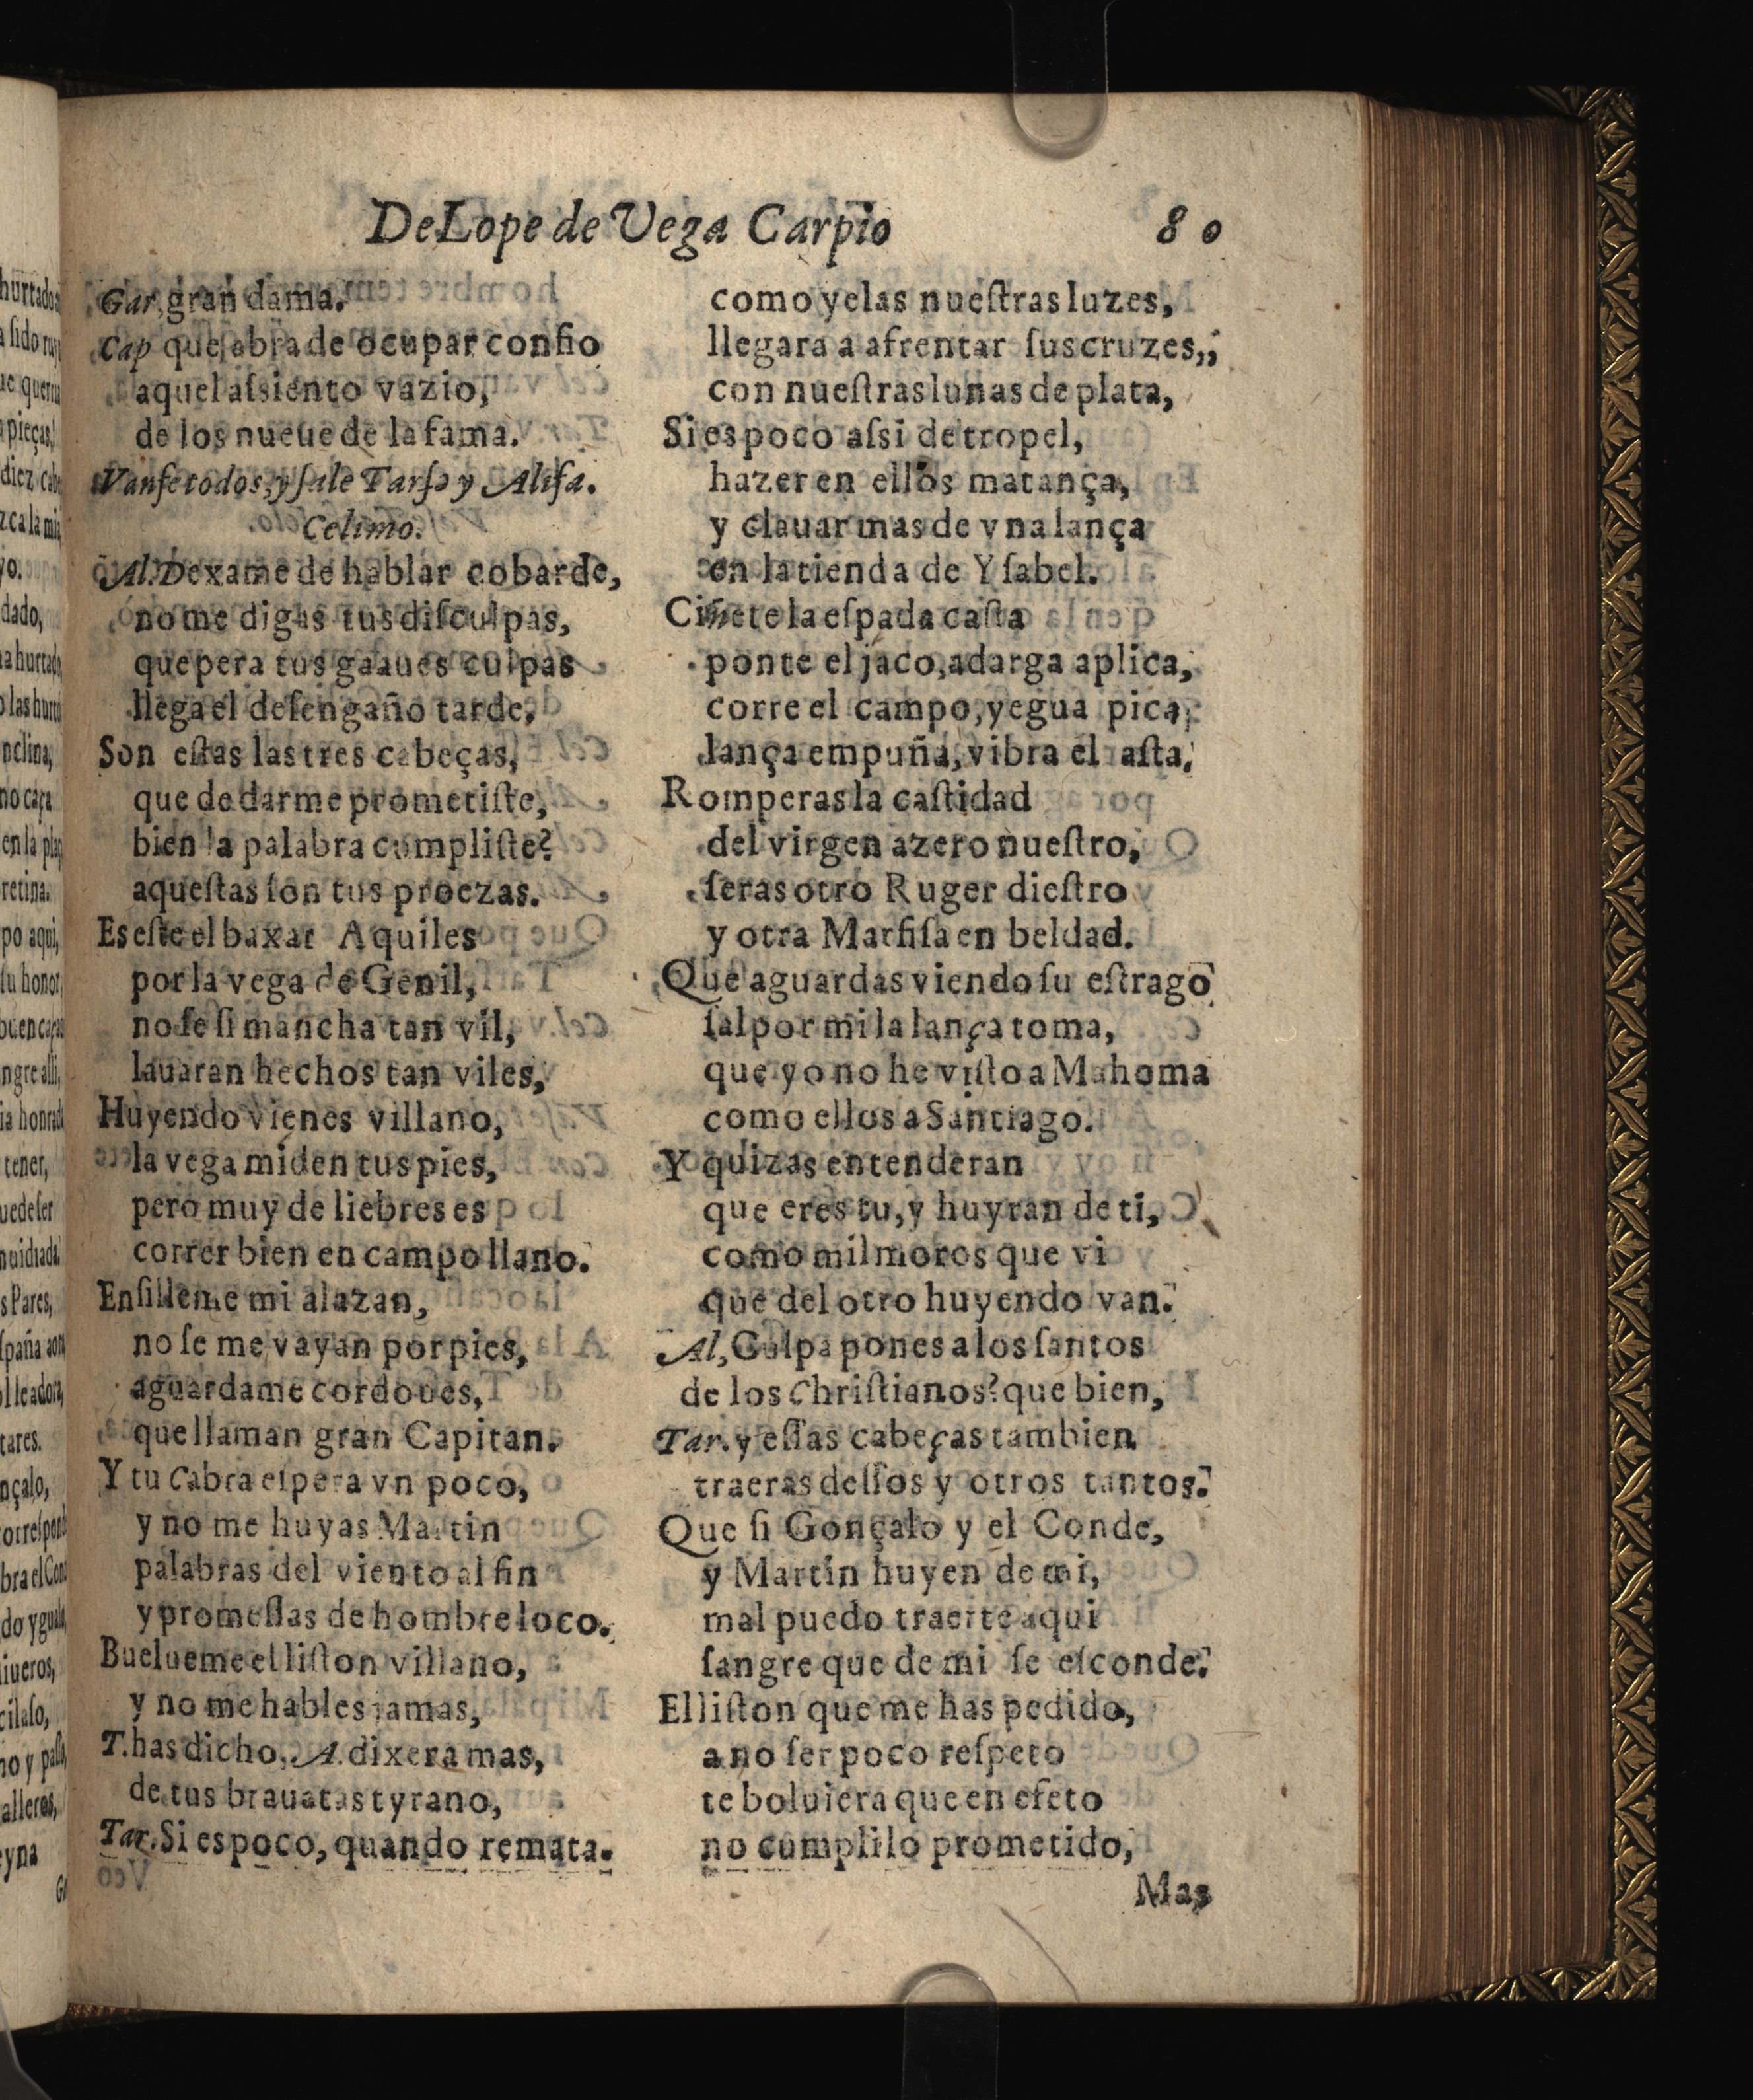 De Lope de Vega Carpio 80
Gar, gran dama.
Cap que abra de ocupar confio
aquel aſsiento vazio,
de los nueue de la fama.
Vanſe todos, y ſale Tarfe y Alifa.
Celimo.
Al. Dexame de hablar cobarde,
no me digas tus diſculpas,
que pera tus gaaues culpas
llega el deſengaño tarde,
Son eſtas las tres cabeças,
que de darme prometiſte,
bien la palabra cumpliſte?
aqueſtas ſon tus proezas.
Es eſte el baxar Aquiles
por la vega de Genil,
no ſe ſi mancha tan vil,
lauaran hechos tan viles,
Huyendo vienes villano,
la vega miden tus pies,
pero muy de liebres es
correr bien en campo llano.
Enſilleme mi alazan,
no ſe me vayan por pies,
aguardame cordoues,
que llaman gran Capitan.
Y tu Cabra eſpera vn poco,
y no me huyas Martin
palabras del viento al fin
y promeſſas de hombre loco.
Buelueme el liſton villano,
y no me hables jamas,
T. has dicho, A. dixera mas,
de tus brauatas tyrano,
Tar. Si es poco, quando remata.
como yelas nueſtras luzes,
llegara a afrentar ſus cruzes,
con nueſtras lunas de plata,
Si es poco aſsi de tropel,
hazer en ellos matança,
y clauar mas de vna lança
en la tienda de Yſabel.
Ciñete la eſpada caſta
ponte el jaco, adarga aplica,
corre el campo, yegua pica,
lança empuña, vibra el aſta,
Romperas la caſtidad
del virgen azero nueſtro,
ſeras otro Ruger dieſtro
y otra Marfiſa en beldad.
Que aguardas viendo ſu eſtrago
ſal por mi la lança toma,
que yo no he viſto a Mahoma
como ellos a Santiago.
Y quizas entenderan
que eres tu, y huyran de ti,
como mil moros que vi
que del otro huyendo van.
Al, Culpa pones a los ſantos
de los Chriſtianos? que bien,
Tar. y eſſas cabeças tambien
traeras deſſos y otros tantos.
Que ſi Gonçalo y el Conde,
y Martin huyen de mi,
mal puedo traerte aqui
ſangre que de mi ſe eſconde.
El liſton que me has pedido,
a no ſer poco reſpeto
te boluiera que en efeto
no cumpli lo prometido,
Mas